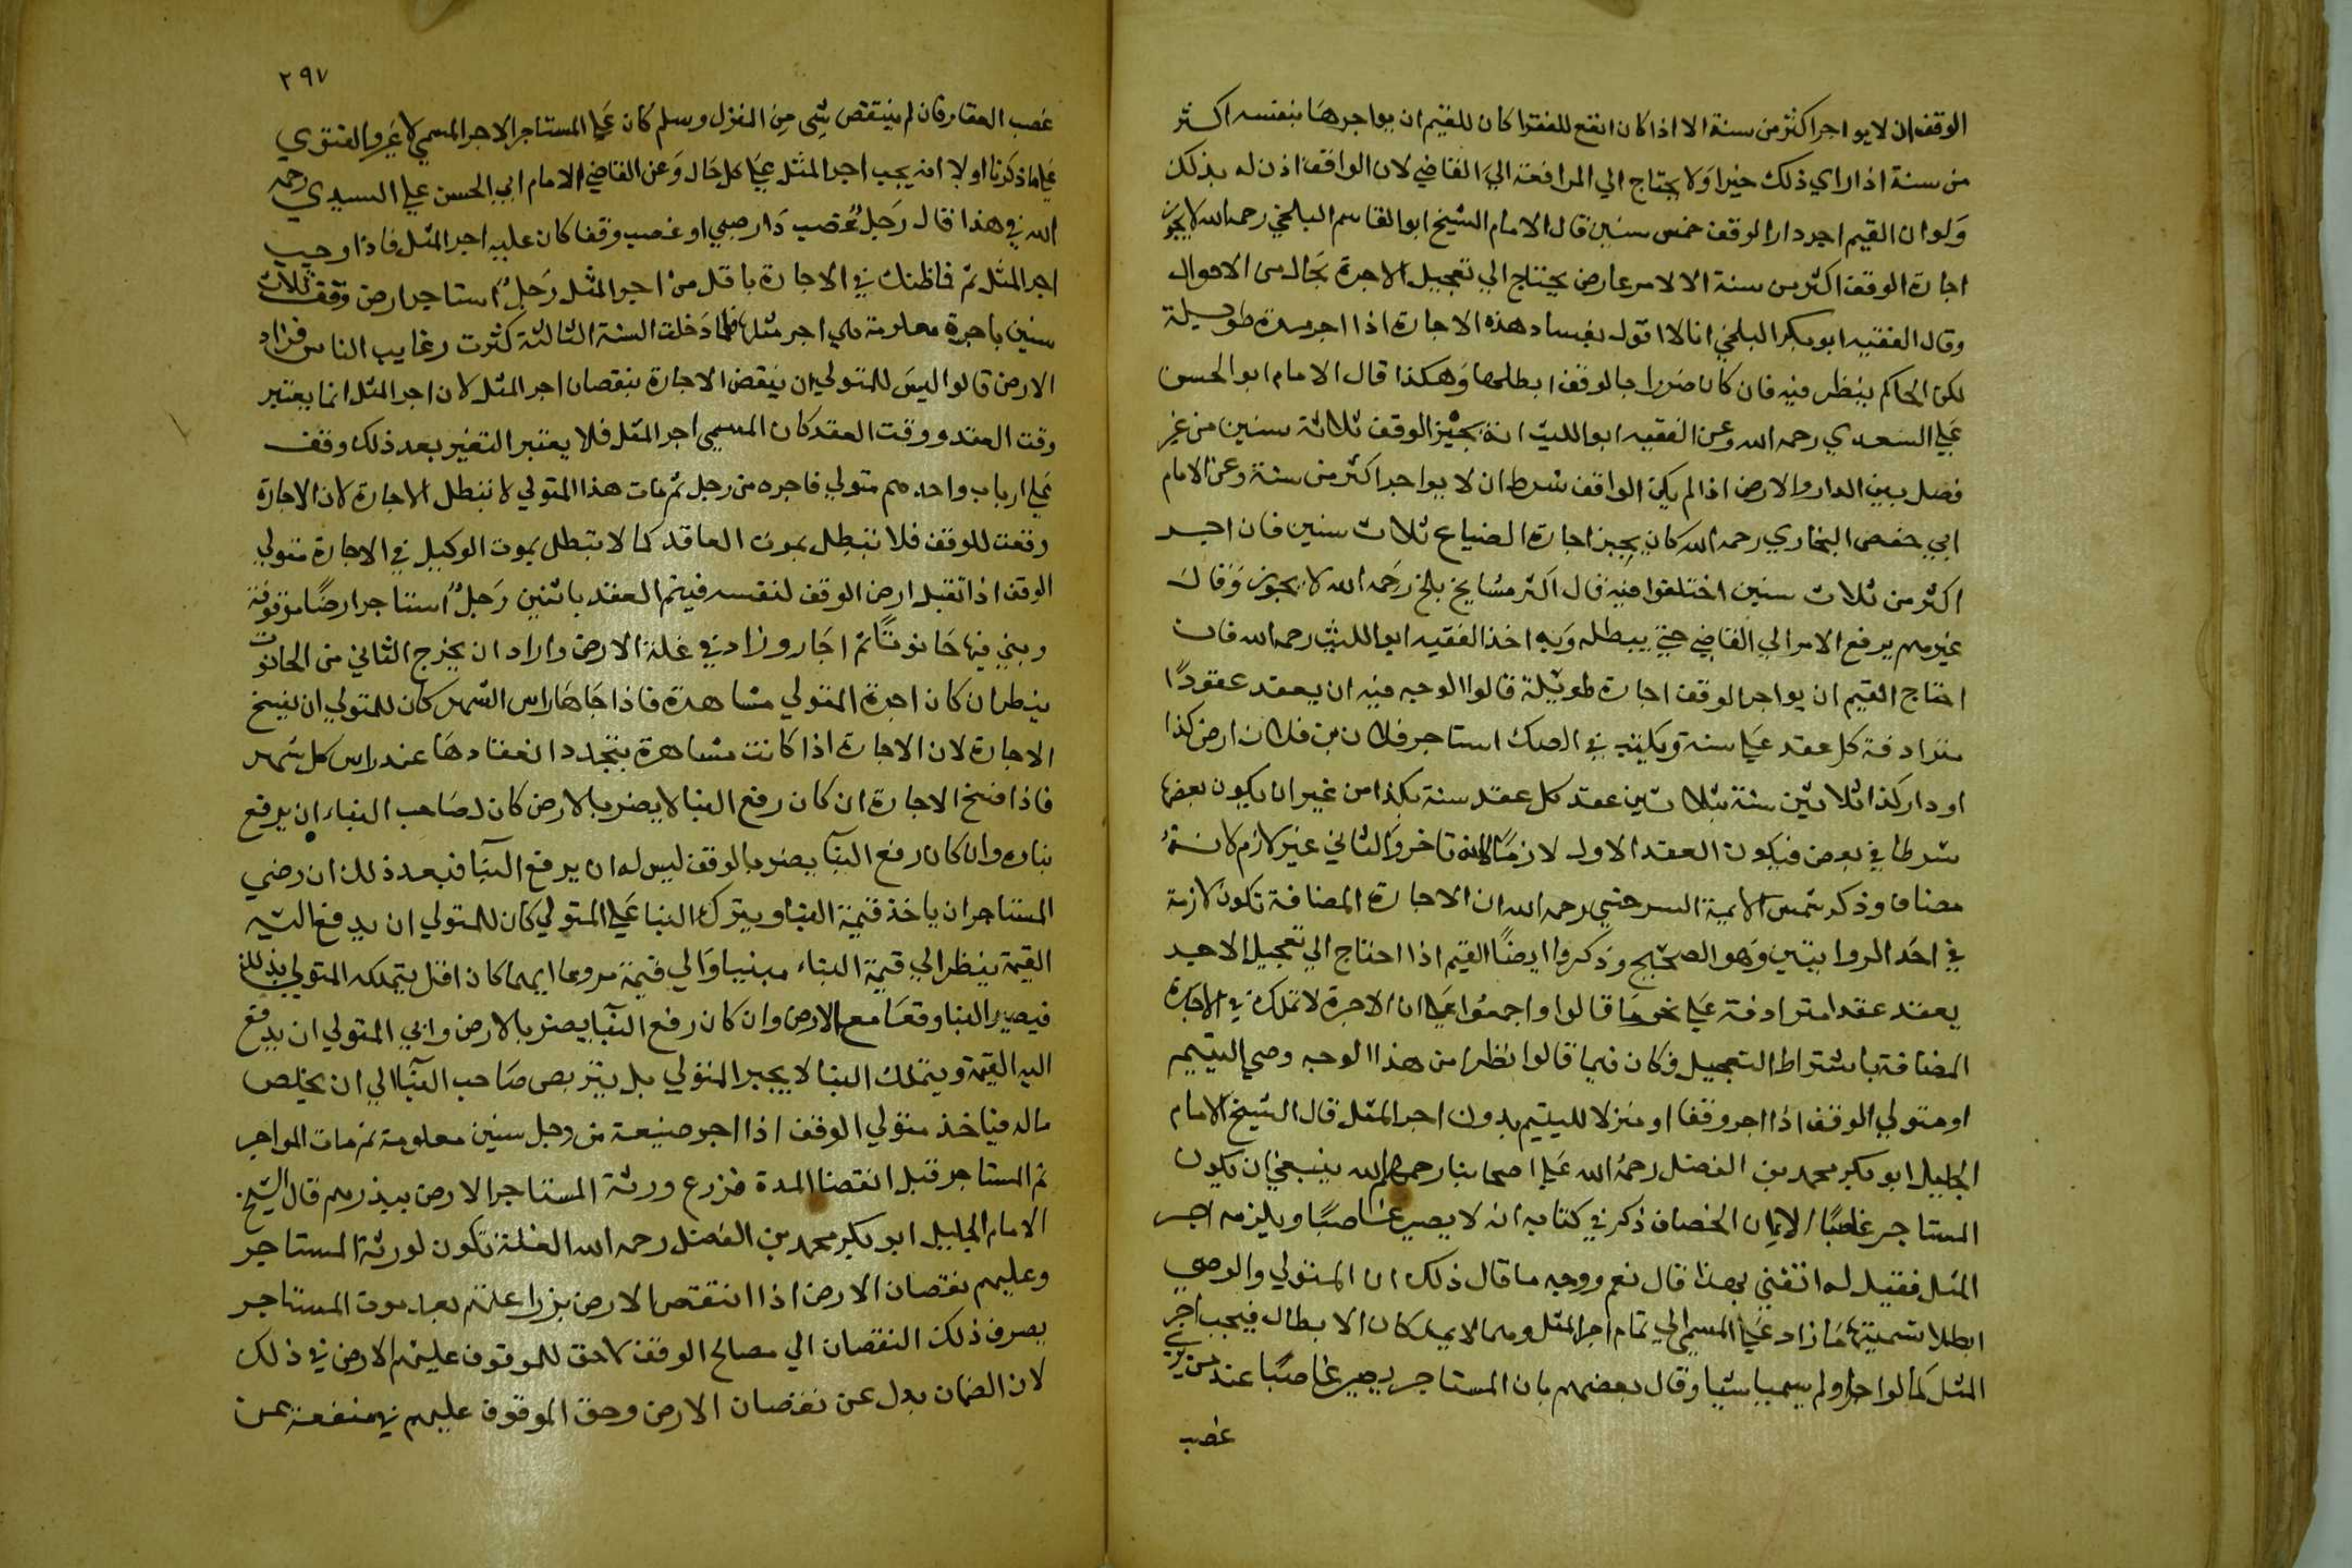 الوقف ان لا يواجر اكثر من سنة الا اذا كان انفع للفقرا كان للقيم ان يواجرها بنفسه اكثر
من سنة اذا راي ذلك خيرا ولا يحتاج الي المرافعة الي القاضي لان الواقف اذن له بذلك
ولو ان القيم اجر دار الوقف خمس سنين قال الامام الشيخ ابو القاسم البلخي رحمه الله لا يجوز
اجارة الوقف اكثر من سنة الا لامر عارض يحتاج الي تعجيل الاجرة بحال من الاحوال
وقال الفقيه ابو بكر البلخي انا لا اقول بفساد هذه الاجارة اذا اجر مدة طويلة
لكن الحاكم ينظر فيه فان كان ضررا بالوقف ابطلها وهكذا قال الامام ابو الحسن
علي السعدي رحمه الله وعن الفقيه ابو الليث انه يجيز الوقف ثلاثة سنين من غير
فصل بين الدار والارض اذا لم يكن الواقف شرط ان لا يواجر اكثر من سنة وعن الامام
ابي حفص البخاري رحمه الله كان يجيز اجارة الضياع ثلاث سنين فان اجر
اكثر من ثلاث سنين اختلفوا فيه قال اكثر مشايخ بلخ رحمه الله لا يجوز وقال
غيرهم يرفع الامر الي القاضي حتي يبطله وبه اخذ الفقيه ابو الليث رحمه الله فان
احتاج القيم ان يواجر الوقف اجارة طويلة قالوا الوجه فيه ان يعقد عقودا
مترادفة كل عقد علي سنة ويكتب في الصك استاجر فلان بن فلان ارض كذا
او دار كذا ثلاثين سنة بثلاثين عقد كل عقد سنة بكذا من غير ان يكون بعضها
شرطا في بعض فيكون العقد الاول لازما لانه تاخر والثاني غير لازم لانه
مضاف وذكر شمس الايمة السرخسي رحمه الله ان الاجارة المضافة تكون لازمة
في احد الروايتين وهو الصحيح وذكروا ايضا القيم اذا احتاج الي تعجيل الاجر
يعقد عقدا مترادفة علي نحو ما قالوا واجمعوا علي ان الاجرة لا تملك في الاجارة
المضافة باشتراط التعجيل فكان فيما قالوا نظرا من هذا الوجه وصي اليتيم
او متولي الوقف اذا اجر وقفا او منزلا لليتيم بدون اجر المثل قال الشيخ الامام
الجليل ابو بكر محمد بن الفضل رحمه الله علي اصحابنا رحمهم الله ينبغي ان يكون
المستاجر غاصبا الا ان الخصاف ذكر في كتابه انه لا يصير غاصبا ويلزمه اجر
المثل فقيل له اتفتي بهذا قال نعم ووجه ما قال ذلك ان المتولي والوصي
ابطلا تسميتهما ما زاد علي المسمي الي تمام اجر المثل وهما لا يملكان الابطال فيجب اجر
المثل كما لو اجر ولم يسميا شيا وقال بعضهم بان المستاجر يصير غاصبا عند من يري
غصب
٢٩٧
غصب العقار فان لم ينتقص شي من المنزل وسلم كان علي المستاجر الاجر المسمي لا غير والفتوي
علي ما ذكرنا اولا انه يجب اجر المثل علي كل حال وعن القاضي الامام ابي الحسن علي السعدي رحمه
الله في هذا قال رجل غصب دار صبي او غصب وقفا كان عليه اجر المثل فاذا وجب
اجر المثل ثم فما ظنك في الاجارة باقل من اجر المثل رجل استاجر ارض وقف ثلاث
سنين باجرة معلومة هي اجر مثلها فلما دخلت السنة الثالثة كثرت رغايب الناس فزاد
الارض قالوا ليس للمتولي ان ينقض الاجارة بنقصان اجر المثل لان اجر المثل انما يعتبر
وقت العقد ووقت العقد كان المسمي اجر المثل فلا يعتبر التغير بعد ذلك وقف
علي ارباب واحدهم متولي فاجره من رجل ثم مات هذا المتولي لا تبطل الاجارة لان الاجارة
وقعت للوقف فلا تبطل بموت العاقد كما لا تبطل بموت الوكيل في الاجارة متولي
الوقف اذا تقبل ارض الوقف لنفسه فيتم العقد باثنين رجل استاجر ارضا موقوفة
وبني فيها حانوتا ثم اجار وزاد في غلة الارض واراد ان يخرج الثاني من الحانوت
ينظر ان كان اجرة المتولي مشاهرة فاذا جاها راس الشهر كان للمتولي ان يفسخ
الاجارة لان الاجارة اذا كانت مشاهرة يتجدد انعقادها عند راس كل شهر
فاذا فسخ الاجارة ان كان رفع البنا لا يضر بالارض كان لصاحب البناء ان يرفع
بناه وان كان رفع البنا يضر بالوقف ليس له ان يرفع البنا فبعد ذلك ان رضي
المستاجر ان ياخذ قيمة البنا ويترك البنا علي المتولي كان للمتولي ان يدفع اليه
القيمة ينظر الي قيمة البناء مبنيا والي قيمة مروعا ايهما كان اقل يتملكه المتولي بذلك
فيصير البنا وقفا مع الارض وان كان رفع البنا يضر بالارض وابي المتولي ان يدفع
اليه القيمة ويتملك البنا لا يجبر المتولي بل يتربص صاحب البنا الي ان يخلص
ماله فياخذ متولي الوقف اذا اجر ضيعة من رجل سنين معلومة ثم مات المواجر
ثم المستاجر قبل انقضا المدة فزرع ورثة المستاجر الارض ببذرهم قال الشيخ
الامام الجليل ابو بكر محمد بن الفضل رحمه الله الغلة تكون لورثة المستاجر
وعليهم نقصان الارض اذا انتقص الارض بزراعتهم بعد موت المستاجر
يصرف ذلك النقصان الي مصالح الوقف لا حق للموقوف عليهم الارض في ذلك
لان الضمان بدل عن نقصان الارض وحق الموقوف عليهم في منفعة عين